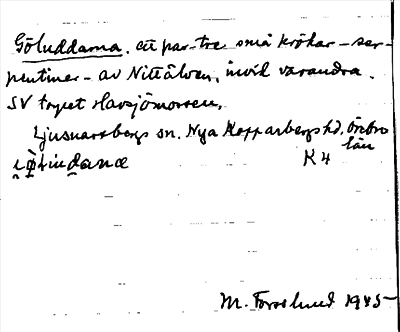 Göluddarna. ett par-tre små krökar – ser-
pentiner – av Nittälven, invid varandra.
SV torpet Havsjömossen,
Ljusnarsbergs sn. Nya Kopparbergs hd. Örebro
län
K 4
M. Forslund 1945